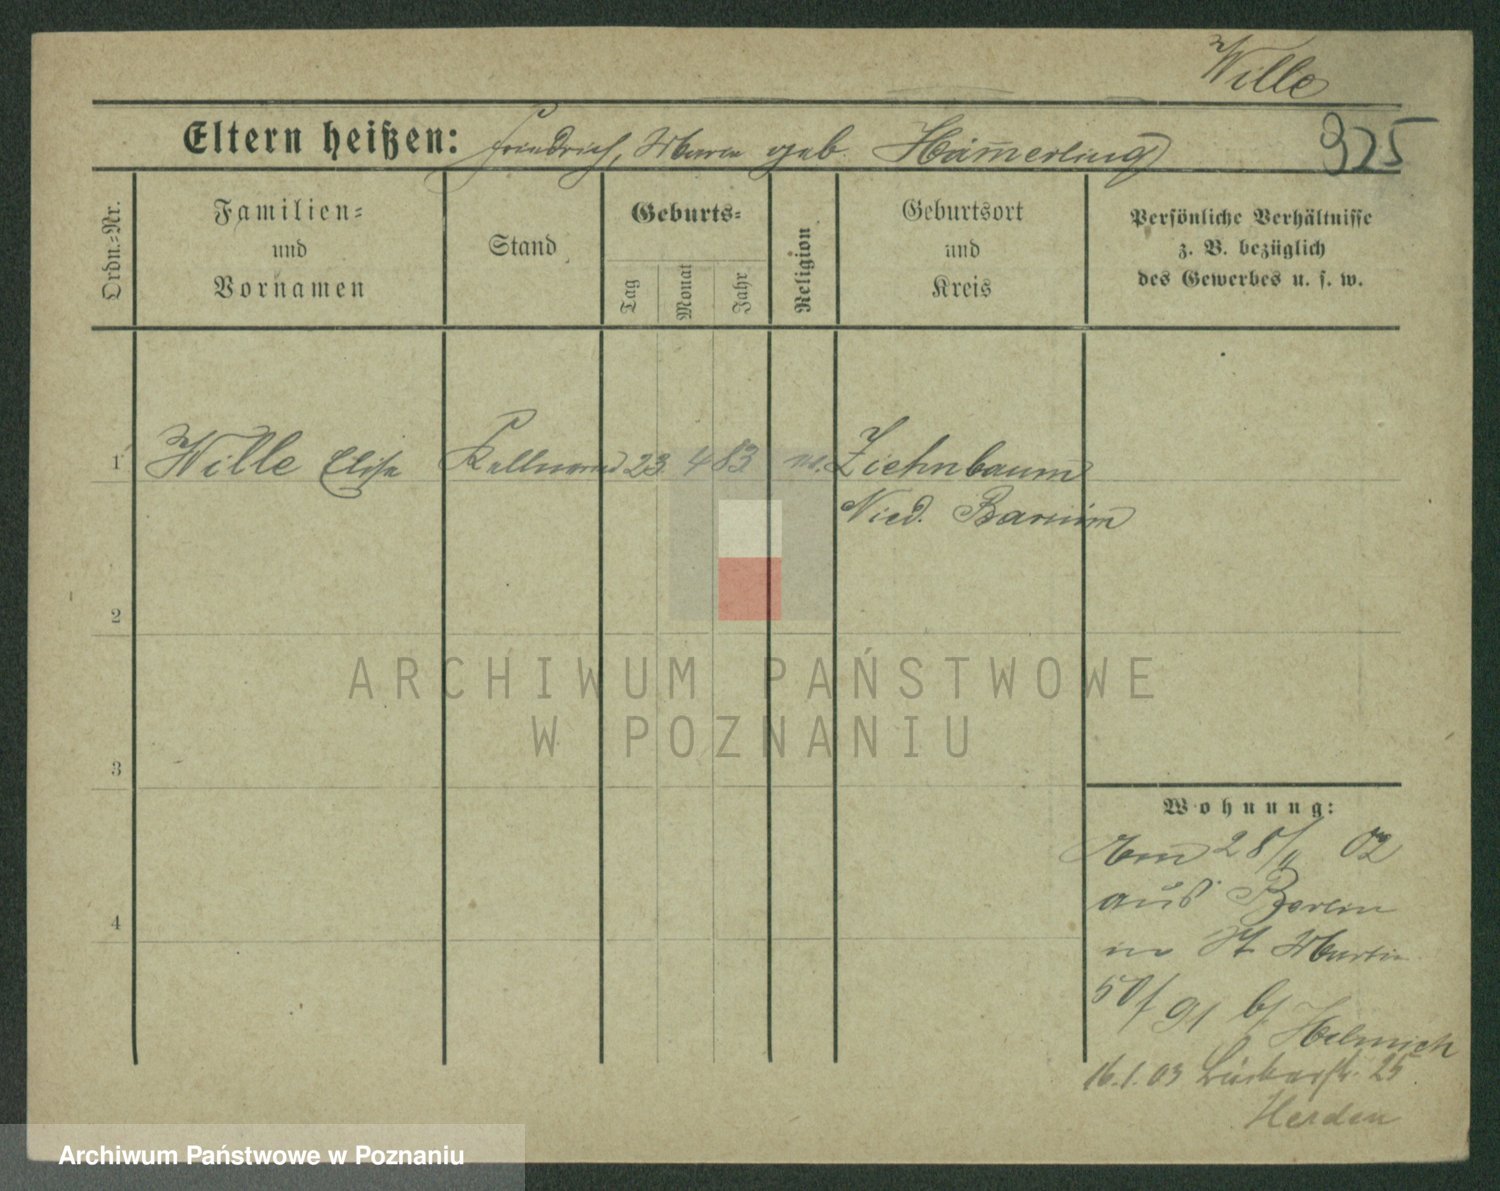 Wille
Eltern heißen: Friedrich, Marie geb. Häm̄erling
325
Ordn.=Nr.
Familien=
und
Vornamen
Stand
Geburts=
Tag
Monat
Jahr
Religion
Geburtsort
und
Kreis
Persönliche Verhältnisse
z. B. bezüglich
des Gewerbes u. s. w.
1 Wille Elise 23. 4 83
Nied. Barnim
2
3
4
ARCHIWUM PAŃSTWOWE
W POZNANIU
Wohnung:
28/11 02
aus Berlin
in St Martin
50/91 b/
16.1.03 25
Herden
Archiwum Państwowe w Poznaniu